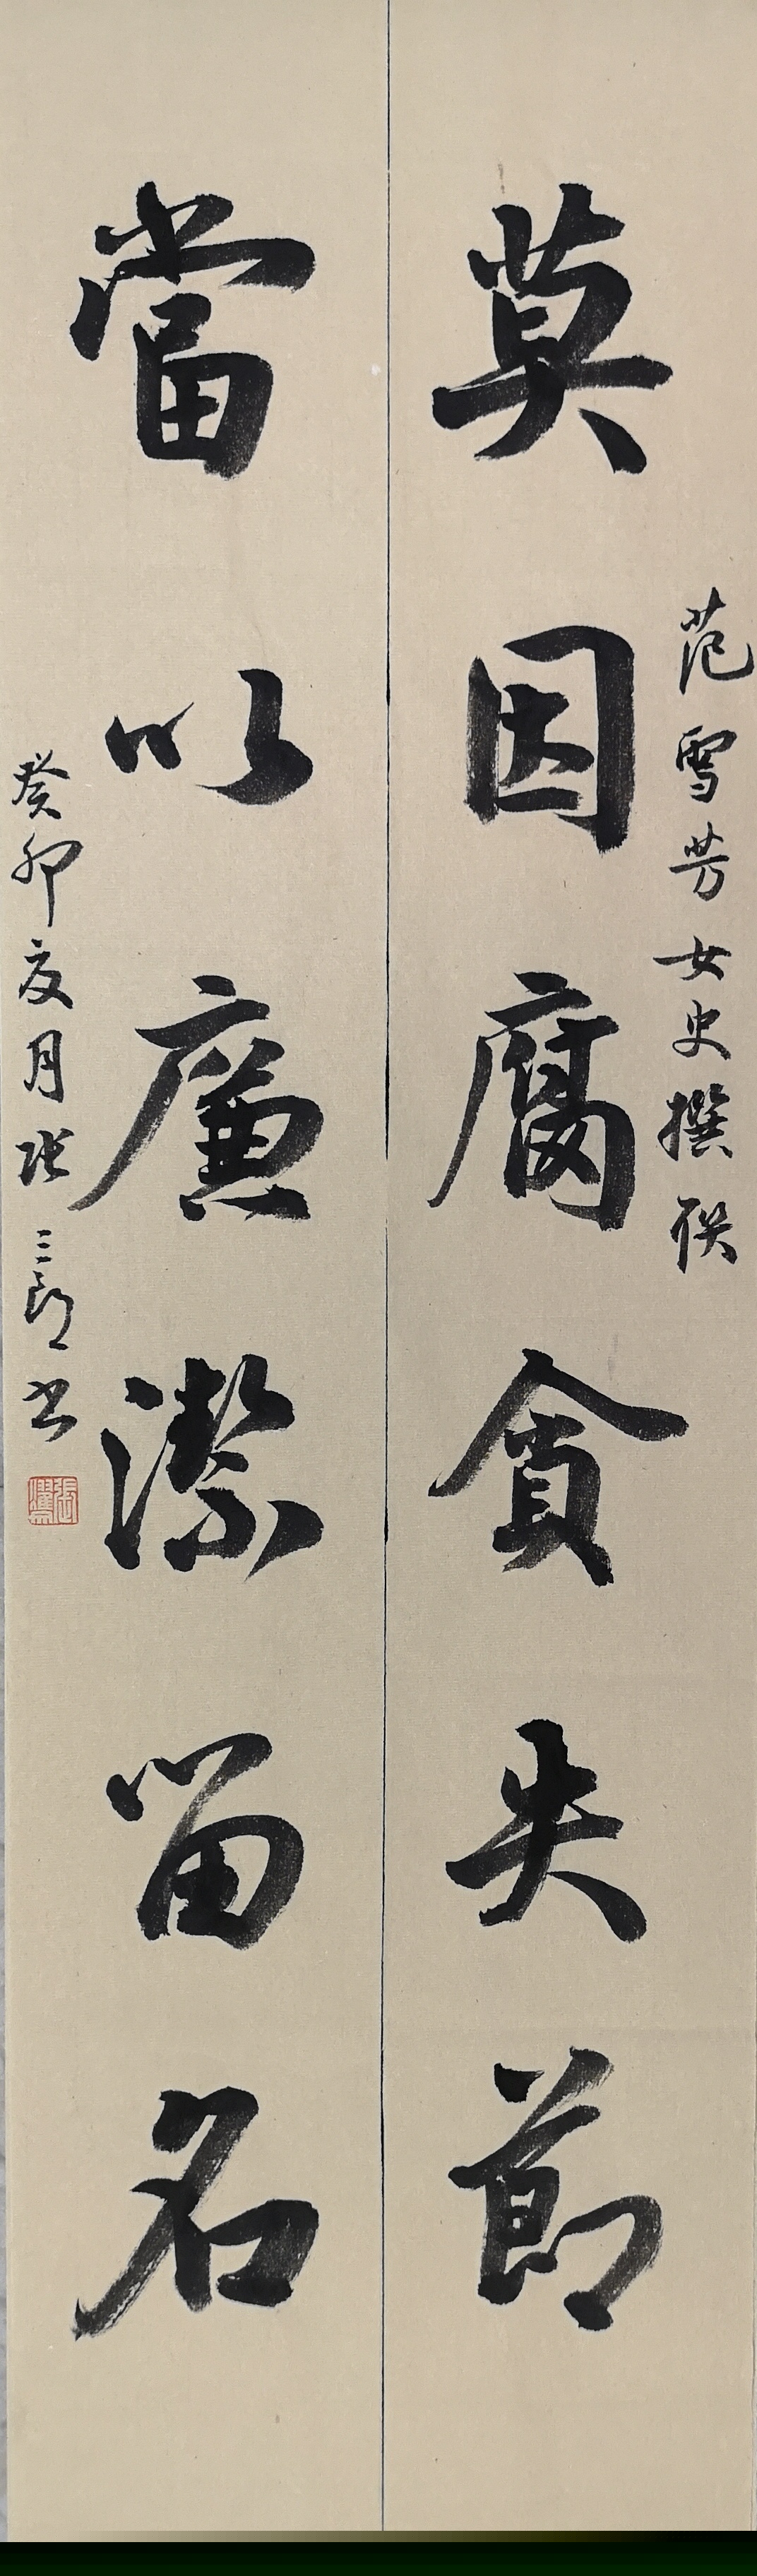 范雪芳女史撰联
莫因腐貪失節
當以廉潔留名
癸卯夏月张三郎书